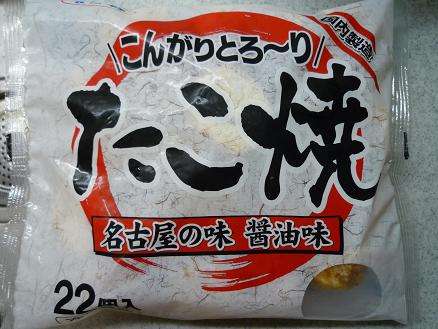 国内製造
こんがりとろ～り
たこ焼
名古屋の味 醤油味
22個入